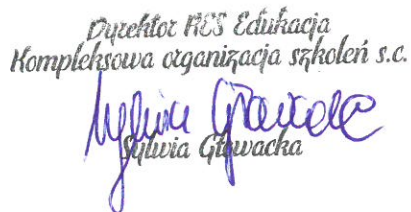 Dyrektor RES Edukacja
Kompleksowa organizacja szkoleń s.c.
Sylwia Głowacka
Sylwia Głowacka